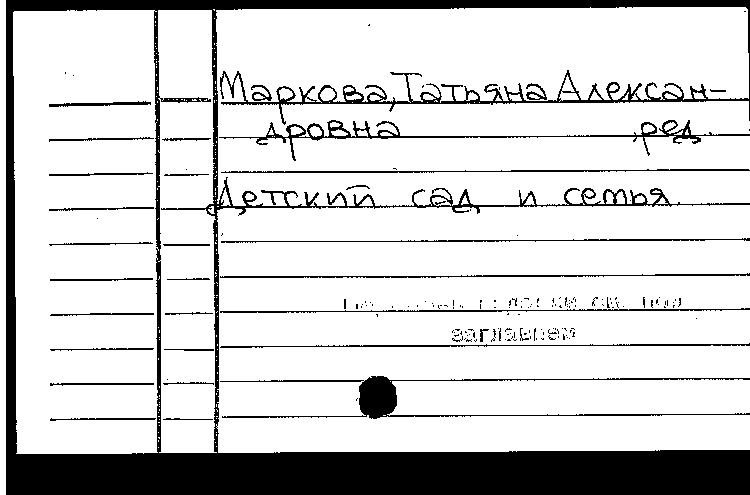 Маркова, Татьяна Алексан-
дровна , ред.
Детский сад и семья.
см. под
заглавием